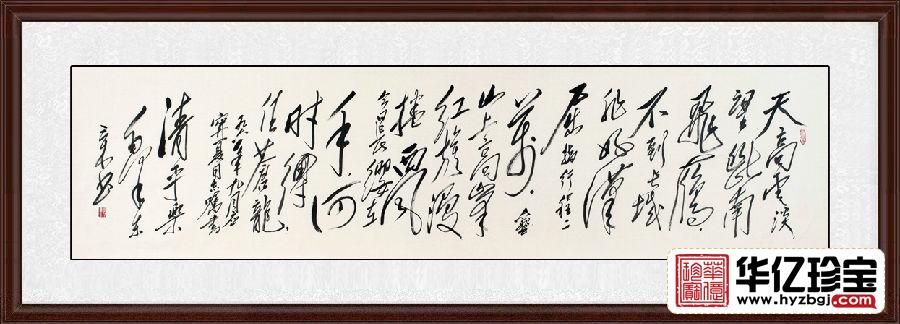 天高雲淡
望斷南
飛雁
不到长城
非好漢
屈指行程二
萬六盤
山上高峰
红旗漫
捲西風
今日長纓在
手何
時縛
住蒼龍
寧夏同志嘱書
清平樂
毛澤东
华亿珍宝
www.hyzbgj.com